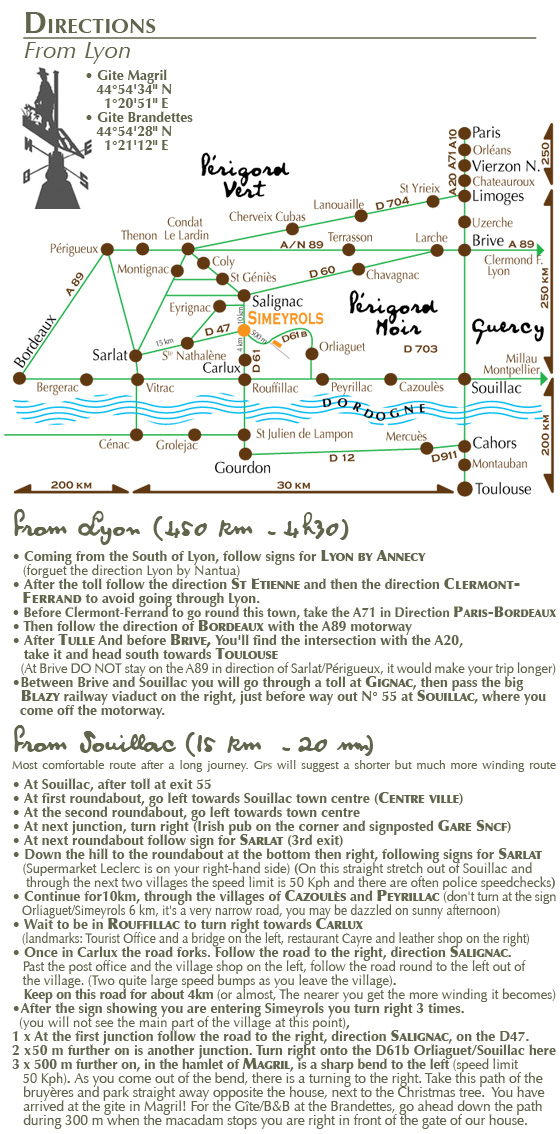 DIRECTIONS
From Lyon
• Gite Magril
44°54'34" N
1°20'51" E
• Gite Brandettes
44°54'28" N
1°21'12" E
N
E
O
S
Périgord
Vert
A20 A71 A10
Paris
Orléans
Vierzon N.
Chateauroux
Limoges
250
St Yrieix
D 704
Lanouaille
Cherveix Cubas
Uzerche
Condat
Le Lardin
Thenon
Périgueux
A/N 89
Terrasson
Larche
Brive
A 89
Clermond F.
Lyon
Coly
Montignac
St Géniès
D 60
Chavagnac
A 89
Salignac
Eyrignac
10km
SIMEYROLS
Périgord
Noir
Quercy
250 KM
D 47
15 km
500 m
D61 B
Bordeaux
Sarlat
Ste Nathalène
4 km
D 61
Orliaguet
D 703
Carlux
Millau
Montpellier
Bergerac
Vitrac
Rouffillac
Peyrillac
Cazoulès
Souillac
DORDOGNE
Cénac
Grolejac
St Julien de Lampon
Mercuès
Cahors
Gourdon
D 12
D911
Montauban
Toulouse
200 KM
200 KM
30 KM
From Lyon (450 km - 4h30)
• Coming from the South of Lyon, follow signs for LYON BY ANNECY
(forguet the direction Lyon by Nantua)
• After the toll follow the direction ST ETIENNE and then the direction CLERMONT-
FERRAND to avoid going through Lyon.
• Before Clermont-Ferrand to go round this town, take the A71 in Direction PARIS-BORDEAUX
• Then follow the direction of BORDEAUX with the A89 motorway
• After TULLE And before BRIVE, You'll find the intersection with the A20,
take it and head south towards TOULOUSE
(At Brive DO NOT stay on the A89 in direction of Sarlat/Périgueux, it would make your trip longer)
•Between Brive and Souillac you will go through a toll at GIGNAC, then pass the big
BLAZY railway viaduct on the right, just before way out N° 55 at SOUILLAC, where you
come off the motorway.
From Souillac (15 km - 20 mn)
Most comfortable route after a long journey. GPS will suggest a shorter but much more winding route
• At Souillac, after toll at exit 55
• At first roundabout, go left towards Souillac town centre (CENTRE VILLE)
• At the second roundabout, go left towards town centre
• At next junction, turn right (Irish pub on the corner and signposted GARE SNCF)
• At next roundabout follow sign for SARLAT (3rd exit)
• Down the hill to the roundabout at the bottom then right, following signs for SARLAT
(Supermarket Leclerc is on your right-hand side) (On this straight stretch out of Souillac and
through the next two villages the speed limit is 50 Kph and there are often police speedchecks)
• Continue for10km, through the villages of CAZOULÈS and PEYRILLAC (don't turn at the sign
Orliaguet/Simeyrols 6 km, it's a very narrow road, you may be dazzled on sunny afternoon)
• Wait to be in ROUFFILLAC to turn right towards CARLUX
(landmarks: Tourist Office and a bridge on the left, restaurant Cayre and leather shop on the right)
• Once in Carlux the road forks. Follow the road to the right, direction SALIGNAC.
Past the post office and the village shop on the left, follow the road round to the left out of
the village. (Two quite large speed bumps as you leave the village).
Keep on this road for about 4km (or almost, The nearer you get the more winding it becomes)
•After the sign showing you are entering Simeyrols you turn right 3 times.
(you will not see the main part of the village at this point),
1 x At the first junction follow the road to the right, direction SALIGNAC, on the D47.
2 x50 m further on is another junction. Turn right onto the D61b Orliaguet/Souillac here
3 x 500 m further on, in the hamlet of MAGRIL, is a sharp bend to the left (speed limit
50 Kph). As you come out of the bend, there is a turning to the right. Take this path of the
bruyères and park straight away opposite the house, next to the Christmas tree. You have
arrived at the gite in Magril! For the Gîte/B&B at the Brandettes, go ahead down the path
during 300 m when the macadam stops you are right in front of the gate of our house.